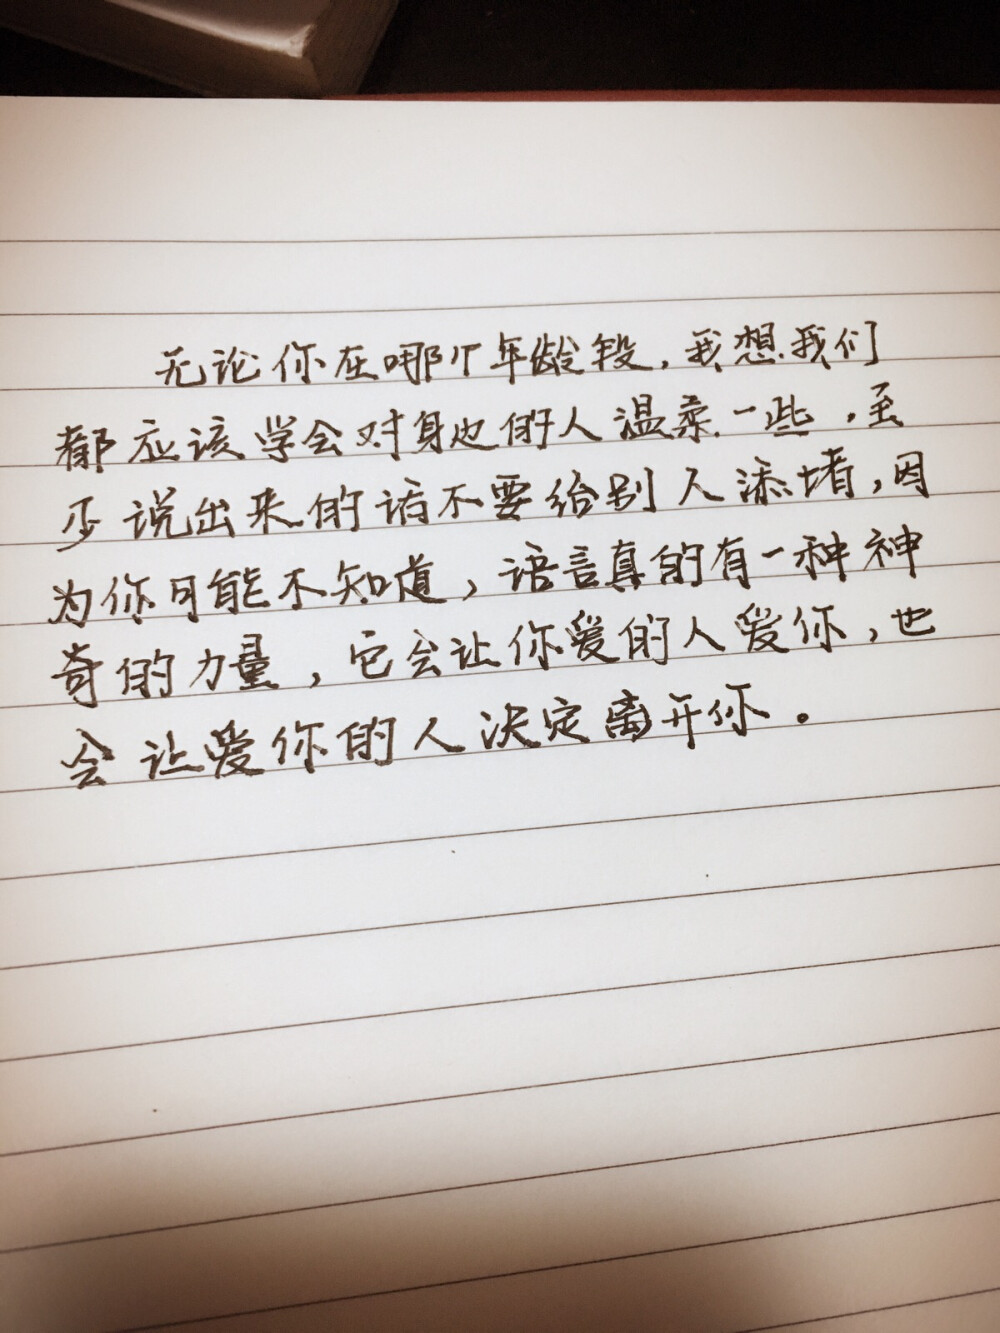 无论你在哪个年龄段，我想我们
都应该学会对身边的人温柔一些，至
少说出来的话不要给别人添堵，因
为你可能不知道，语言真的有一种神
奇的力量，它会让你爱的人爱你，也
会让爱你的人决定离开你。